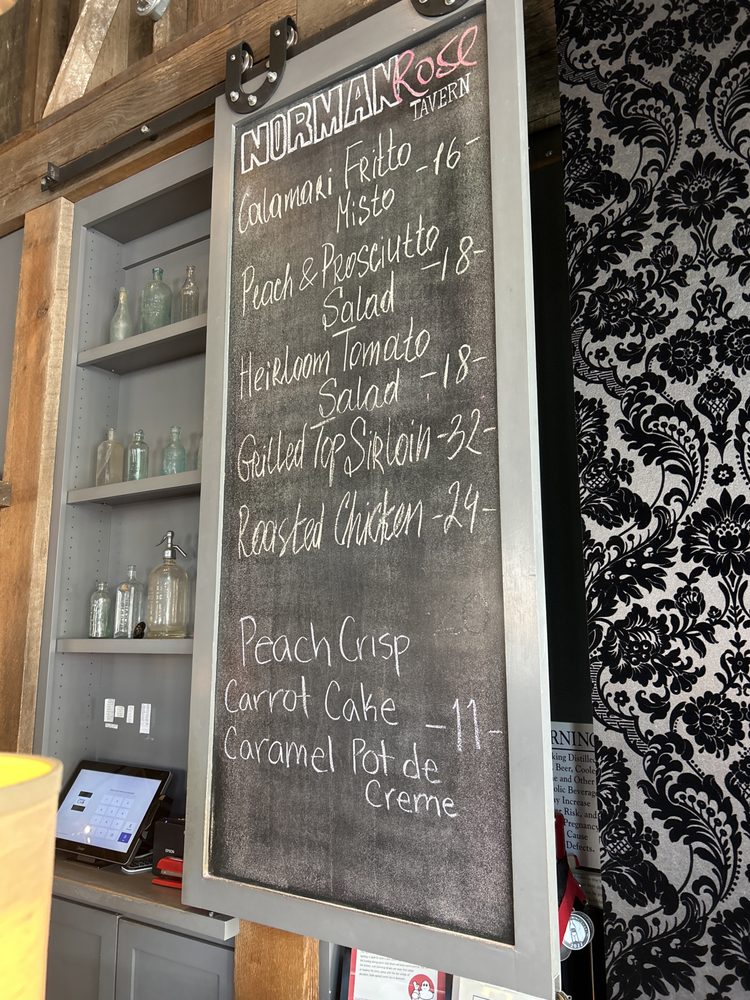 NORMAN Rose
TAVERN
Calamari Fritto
Misto -16-
Peach & Prosciutto
Salad -18-
Heirloom Tomato
Salad -18-
Grilled Top Sirloin -32-
Roasted Chicken -24-
Peach Crisp
Carrot Cake -11-
Caramel Pot de
Creme
RNING
king Distilled
Beer, Coole
e and Other
olic Beverag
y Increase
Risk, and
Pregnancy
Cause
Defects.
EPSON